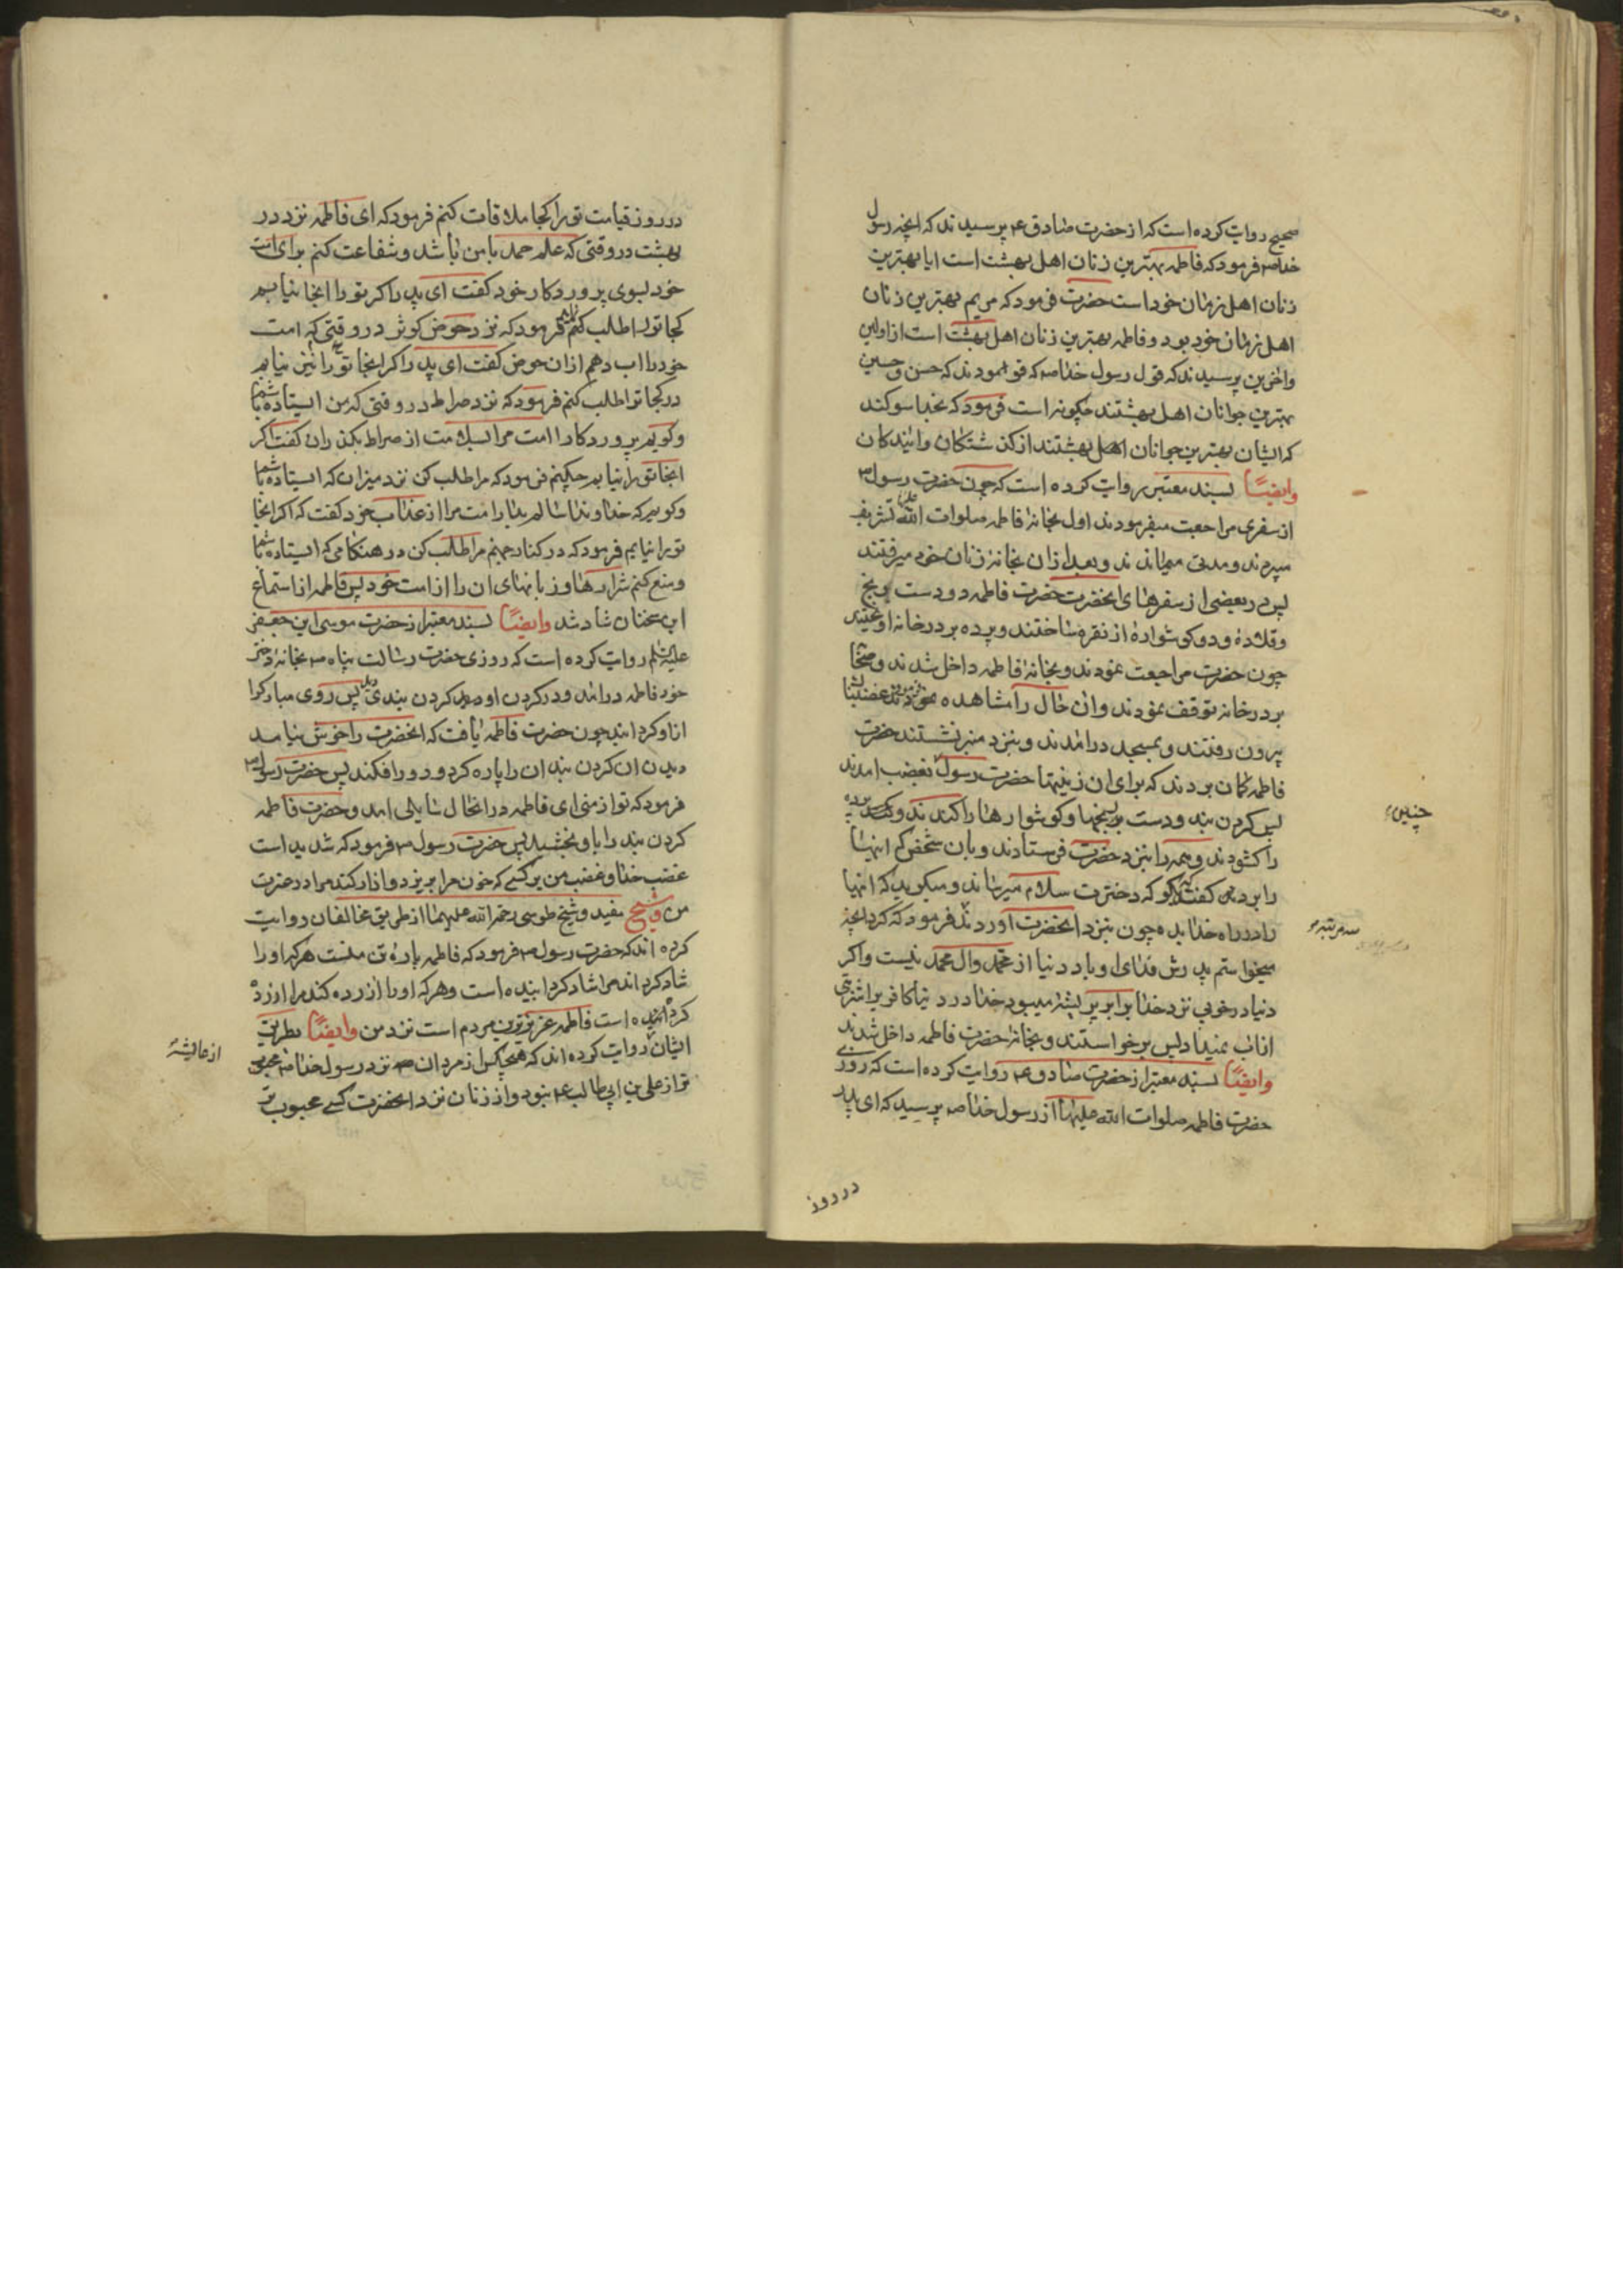 صحیح روایت کرده است که از حضرت صادق ع پرسیدند که انچه رسول
خدا ص فرمود که فاطمه بهترین زنان اهل بهشت است ایا بهترین
زنان اهل زمان خود است حضرت فرمود که مریم بهترین زنان
اهل زمان خود بود و فاطمه بهترین زنان اهل بهشت است از اولین
واخرین پرسیدند که قول رسول خدا ص که فرمودند که حسن و حسین
بهترین جوانان اهل بهشتند چکونه است فرمود که بخدا سوکند
که ایشان بهترین جوانان اهل بهشتند از کذشتکان وایندکان
وایضًا بسند معتبر روایت کرده است که چون حضرت رسول ص
از سفری مراجعت میفرمودند اول بخانهٔ فاطمه صلوات الله علیها تشریف
میبردند ومدتی میماندند وبعد ازان بخانهٔ زنان خود میرفتند
پس در بعضی از سفرهای انحضرت حضرت فاطمه دو دست برنج
وقلادهٔ ودو کوشوارهٔ از نقره ساختند وپرده بر در خانه اویختند
چون حضرت مراجعت نمودند وبخانهٔ فاطمه داخل شدند وصحابا
بر در خانه توقف نمودند وان حال را مشاهده نمودند غضبناک
بیرون رفتند وبمسجد درامدند وبنزد منبر نشستند حضرت
فاطمه کمان بردند که برای ان زینتها حضرت رسول بغضب امدند
پس کردن بند ودست برنجها وکوشوارها را کندند و پرده
را کشودند وهمه را بنزد حضرت فرستادند وبان شخص که اینها
را برد کفتند بکو که دخترت سلام میرساند ومیکوید که اینها
را در راه خدا بده چون بنزد انحضرت اوردند فرمود که کرد انچه
میخواستم پدرش فدای او باد دنیا از محمد وال محمد نیست واکر
دنیا در خوبی نزد خدا برابر پر پشهٔ میبود خدا در دنیا کافر را شربتی
از اب نمیداد پس برخواستند وبخانهٔ حضرت فاطمه داخل شدند
وایضًا بسند معتبر از حضرت صادق ع روایت کرده است که روزی
حضرت فاطمه صلوات الله علیها از رسول خدا ص پرسید که ای پدر
در روز
چنین
سه مرتبه
در روز قیامت تو را کجا ملاقات کنم فرمود که ای فاطمه نزد در
بهشت در وقتی که علم حمد با من باشد وشفاعت کنم برای امت
خود بسوی پروردکار خود کفت ای پدر اکر تو را انجا نیابم
کجا تو را طلب کنم فرمود که نزد حوض کوثر در وقتی که امت
خود را اب دهم ازان حوض کفت ای پدر اکر انجا تو را نیز نیابم
در کجا تو را طلب کنم فرمود که نزد صراط در وقتی که من ایستاده باشم
وکویم پروردکارا امت مرا بسلامت از صراط بکذران کفت اکر
انجا تو را نیابم چکنم فرمود که مرا طلب کن نزد میزان که ایستاده باشم
وکویم که خداوندا سالم بدار امت مرا از عذاب خود کفت که اکر انجا
تو را نیابم فرمود که در کنار جهنم مرا طلب کن در هنکامی که ایستاده باشم
ومنع کنم شرارها وزبانهای ان را از امت خود پس فاطمه از استماع
این سخنان شاد شد وایضًا بسند معتبر از حضرت موسی ابن جعفر
علیه السلام روایت کرده است که روزی حضرت رسالت پناه ص بخانهٔ دختر
خود فاطمه درامد ودر کردن او کردن بندی دید پس روی مبارک را
از او کردانید چون حضرت فاطمه یافت که انحضرت را خوش نیامد
دیدن ان کردن بند ان را پاره کرد ودور افکند پس حضرت رسول ص
فرمود که تو از منی ای فاطمه درانحال سایلی امد وحضرت فاطمه
کردن بند را باو بخشید پس حضرت رسول ص فرمود که شدید است
غضب خدا وغضب من بر کسی که خون مرا بریزد وازار کند مرا در عترت
من وشیخ مفید وشیخ طوسی رحمة الله علیهما از طریق مخالفان روایت
کرده اند که حضرت رسول ص فرمود که فاطمه پارهٔ تن منست هر که او را
شاد کرداند مرا شاد کردانیده است وهر که او را ازرده کند مرا ازرده
کردانیده است فاطمه عزیزترین مردم است نزد من وایضًا بطریق
ایشان روایت کرده اند که هیچکس از مردان نزد رسول خدا ص محبوب
تر از علی بن ابی طالب ع نبود واز زنان نزد انحضرت کسی محبوب تر
از عایشه